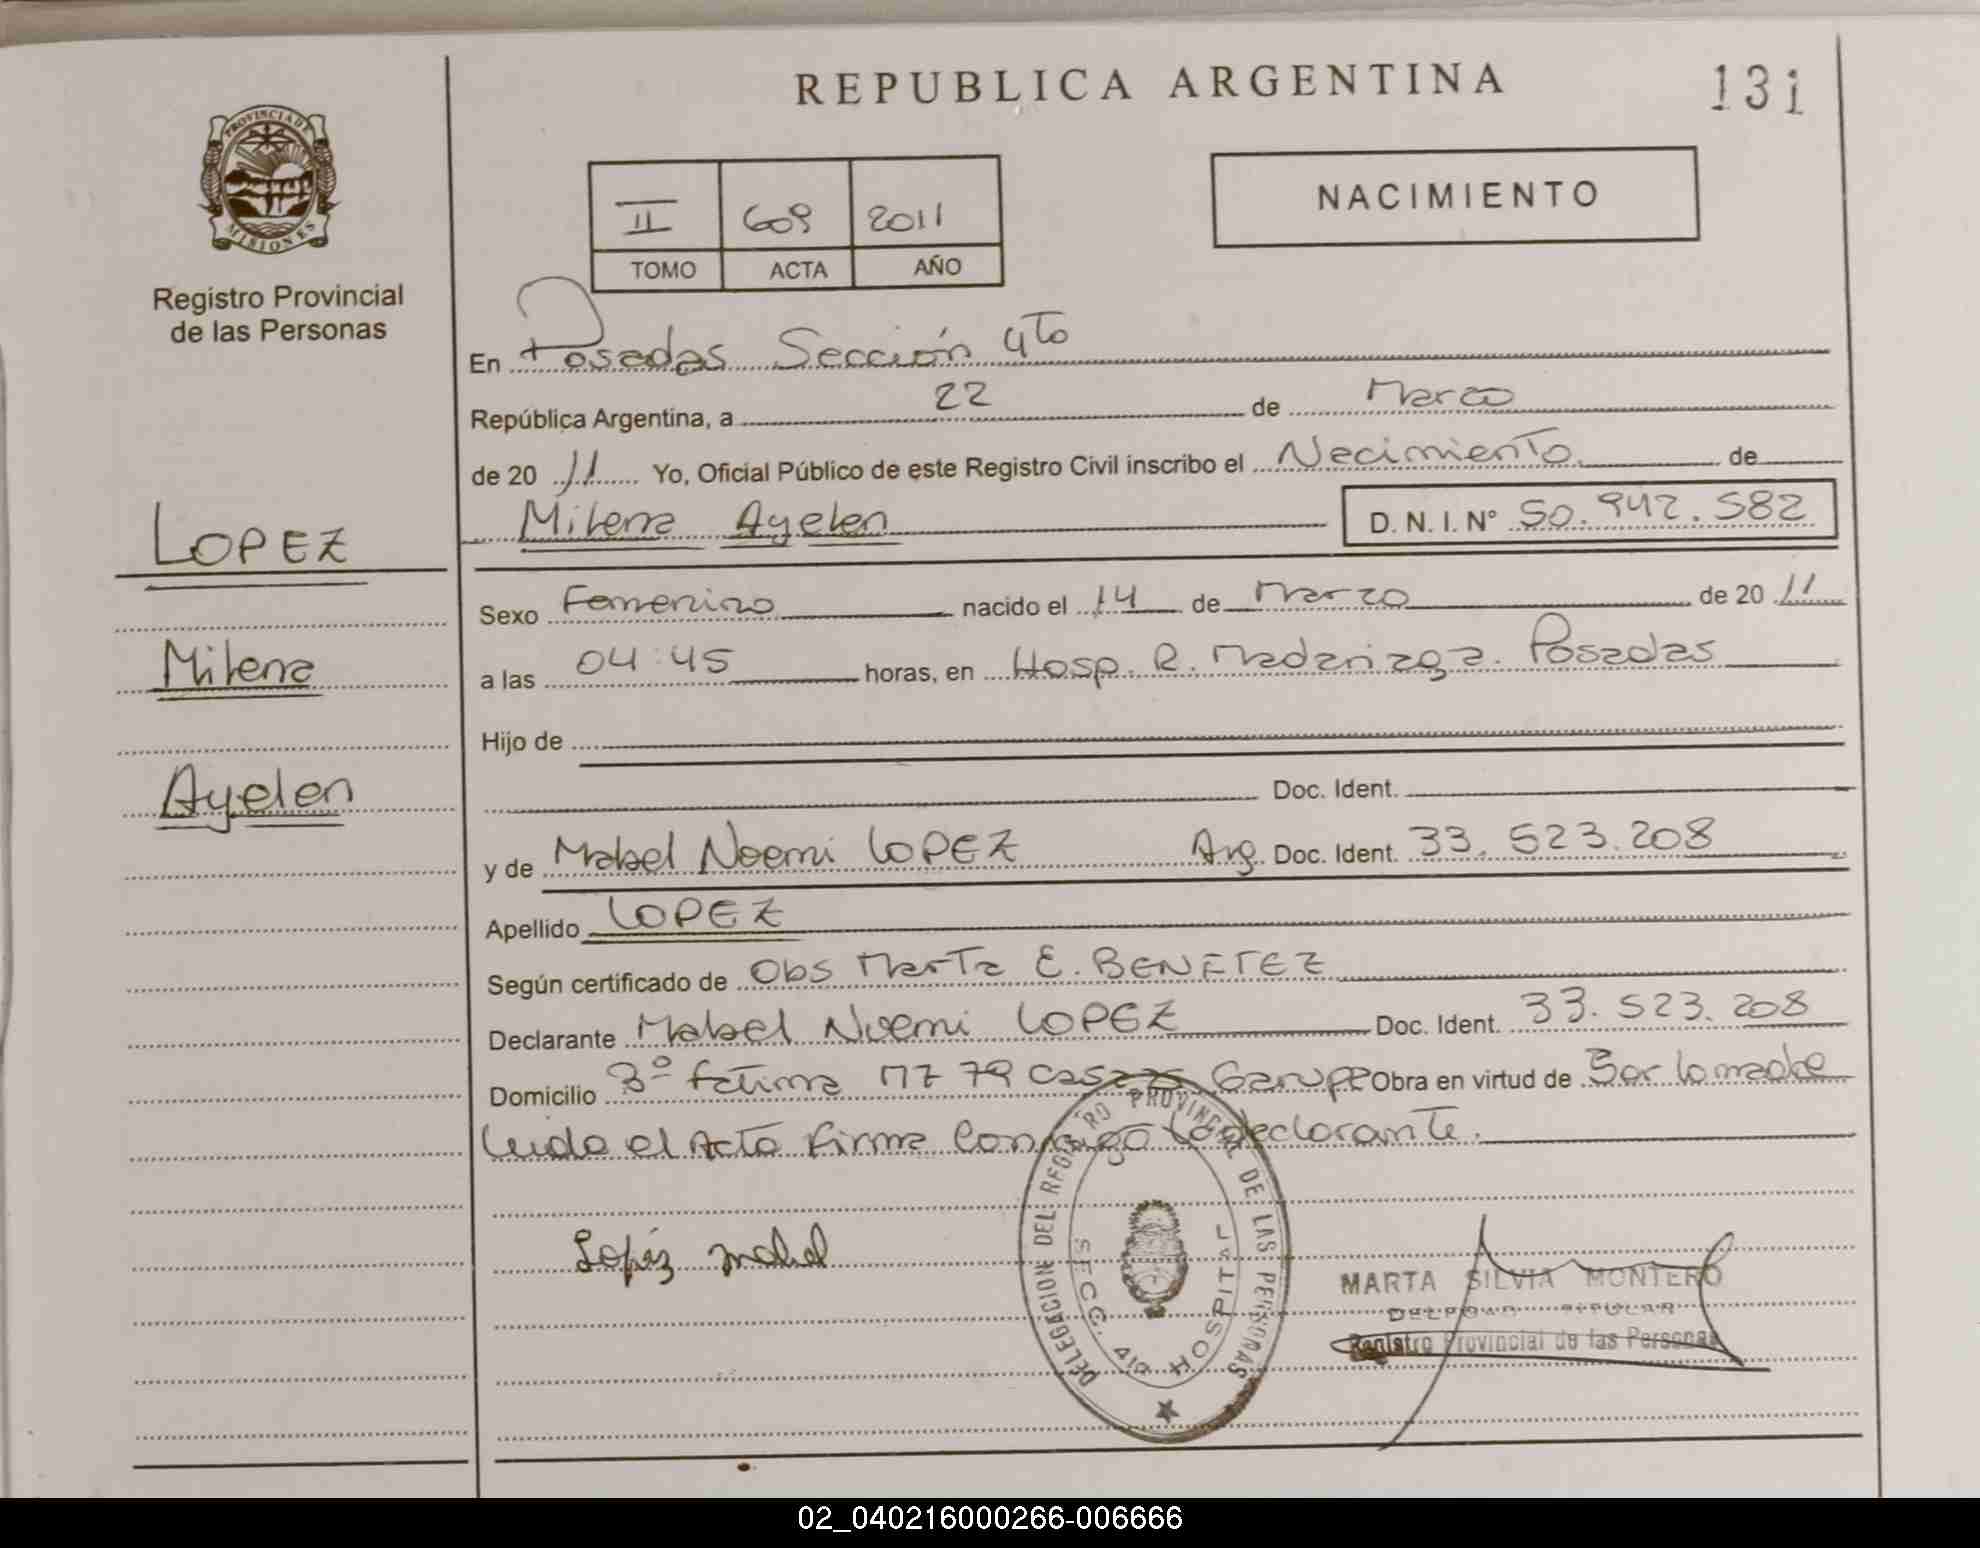 REPUBLICA ARGENTINA
131
PROVINCIA DE
MISIONES
Registro Provincial
de las Personas
II 609 2011
TOMO ACTA AÑO
NACIMIENTO
En Posadas Sección 4to
República Argentina, a 22 de Marzo
de 20 11 Yo, Oficial Público de este Registro Civil inscribo el Nacimiento de
Milena Ayelen D. N. I. N° 50.942.582
LOPEZ
Milena
Ayelen
Sexo Femenino nacido el 14 de Marzo de 20 11
a las 04:45 horas, en Hosp. R. Madariaga. Posadas
Hijo de
Doc. Ident.
y de Mabel Noemi LOPEZ Arg. Doc. Ident. 33.523.208
Apellido LOPEZ
Según certificado de Obs Marta E. BENETEZ
Declarante Mabel Noemi LOPEZ Doc. Ident. 33.523.208
Domicilio Bº Fatima MZ 79 Casa Garupa Obra en virtud de Ser la madre
Leida el Acta Firma Conmigo la declarante.
Lopéz mabel
DELEGACION DEL REGISTRO PROVINCIAL DE LAS PERSONAS
SECC. 4ta HOSPITAL
MARTA SILVIA MONTERO
DELEGADA TITULAR
Registro Provincial de las Personas
02_040216000266-006666